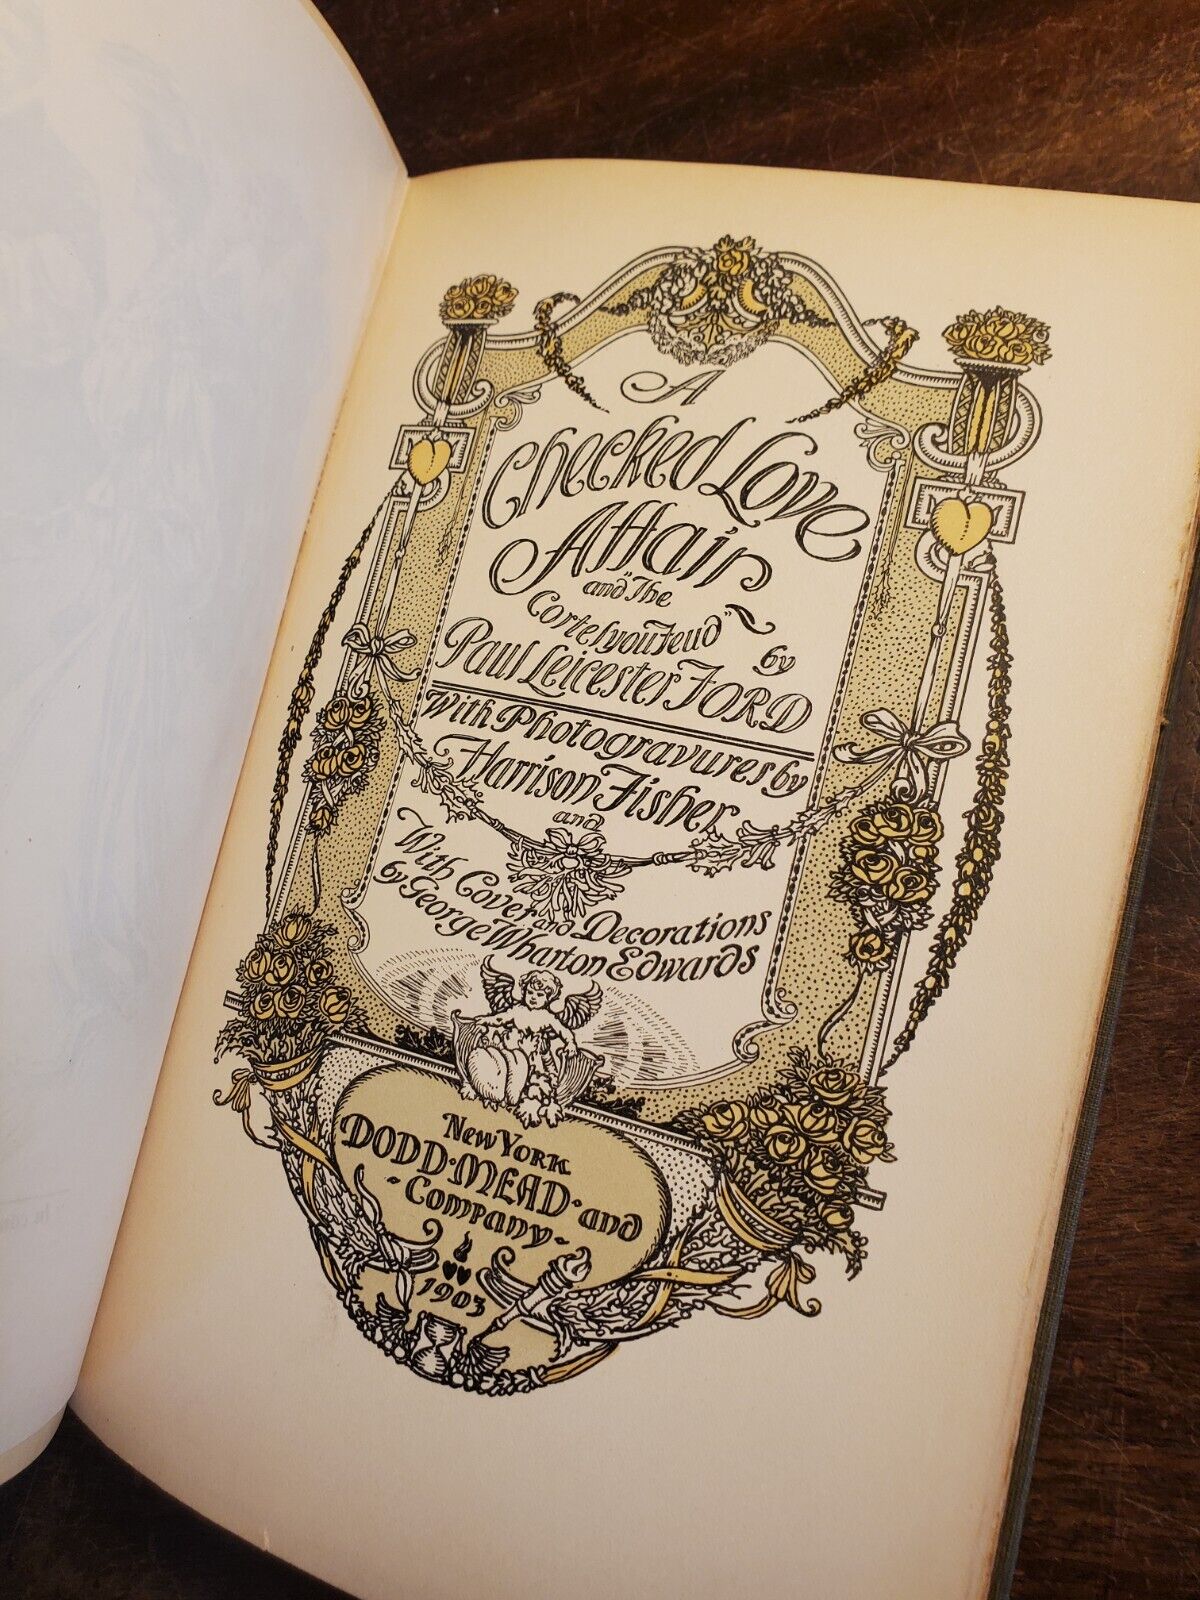 A
Checked Love
Affair
and "The
Cortelyou Feud" by
Paul Leicester FORD
With Photogravures by
Harrison Fisher
and
With Cover and Decorations
by George Wharton Edwards
New York
DODD·MEAD·and
-Company-
1903